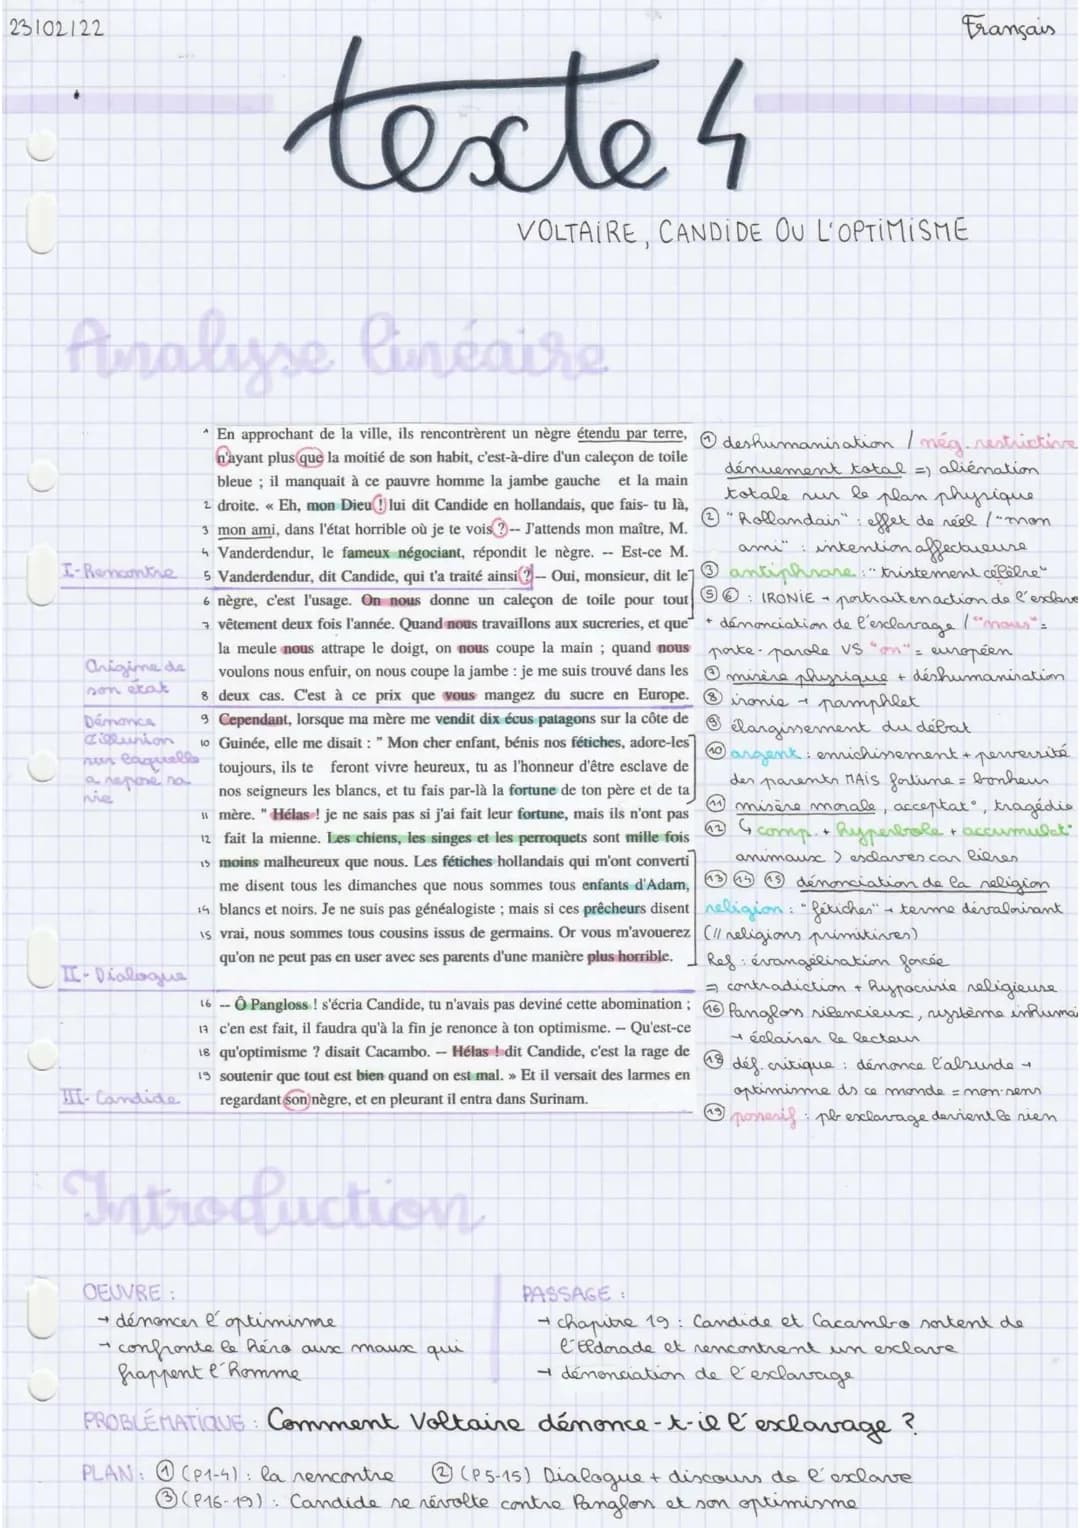 23/02/22
Français
texte 4
VOLTAIRE, CANDIDE OU L'OPTIMISME
Analyse linéaire
1 En approchant de la ville, ils rencontrèrent un nègre étendu par terre,
n'ayant plus que la moitié de son habit, c'est-à-dire d'un caleçon de toile
bleue ; il manquait à ce pauvre homme la jambe gauche et la main
2 droite. « Eh, mon Dieu ! lui dit Candide en hollandais, que fais- tu là,
3 mon ami, dans l'état horrible où je te vois ? -- J'attends mon maître, M.
4 Vanderdendur, le fameux négociant, répondit le nègre. -- Est-ce M.
5 Vanderdendur, dit Candide, qui t'a traité ainsi ? -- Oui, monsieur, dit le
6 nègre, c'est l'usage. On nous donne un caleçon de toile pour tout
7 vêtement deux fois l'année. Quand nous travaillons aux sucreries, et que
la meule nous attrape le doigt, on nous coupe la main ; quand nous
voulons nous enfuir, on nous coupe la jambe : je me suis trouvé dans les
8 deux cas. C'est à ce prix que vous mangez du sucre en Europe.
9 Cependant, lorsque ma mère me vendit dix écus patagons sur la côte de
10 Guinée, elle me disait : " Mon cher enfant, bénis nos fétiches, adore-les
toujours, ils te feront vivre heureux, tu as l'honneur d'être esclave de
nos seigneurs les blancs, et tu fais par-là la fortune de ton père et de ta
11 mère. " Hélas ! je ne sais pas si j'ai fait leur fortune, mais ils n'ont pas
12 fait la mienne. Les chiens, les singes et les perroquets sont mille fois
13 moins malheureux que nous. Les fétiches hollandais qui m'ont converti
me disent tous les dimanches que nous sommes tous enfants d'Adam,
14 blancs et noirs. Je ne suis pas généalogiste ; mais si ces prêcheurs disent
15 vrai, nous sommes tous cousins issus de germains. Or vous m'avouerez
qu'on ne peut pas en user avec ses parents d'une manière plus horrible.
16 -- Ô Pangloss ! s'écria Candide, tu n'avais pas deviné cette abomination ;
17 c'en est fait, il faudra qu'à la fin je renonce à ton optimisme. -- Qu'est-ce
18 qu'optimisme ? disait Cacambo. -- Hélas ! dit Candide, c'est la rage de
19 soutenir que tout est bien quand on est mal. » Et il versait des larmes en
regardant son nègre, et en pleurant il entra dans Surinam.
I- Rencontre
Origine de
son état
Dénonce
l'illusion
sur laquelle
a reposé sa
vie
II- Dialogue
III- Candide
① deshumanisation / nég. restrictive
dénuement total => aliénation
totale sur le plan physique
② "hollandais" : effet de réel / "mon
ami" : intention affectueuse
③ antiphrase : "tristement célèbre"
⑤ ⑥ : IRONIE → portrait en action de l'esclave
+ dénonciation de l'esclavage / "nous" =
porte-parole VS "on" = européen
⑦ misère physique + déshumanisation
⑧ ironie → pamphlet
⑨ élargissement du débat
⑩ argent : enrichissement + perversité
des parents MAIS fortune = bonheur
⑪ misère morale, acceptat°, tragédie
⑫ ↳ comp. + hyperbole + accumulat°
animaux > esclaves car libres
⑬ ⑭ ⑮ dénonciation de la religion
religion : "fétiches" → terme dévalorisant
(// religions primitives)
Ref : évangélisation forcée
=> contradiction + hypocrisie religieuse
⑯ Pangloss silencieux, système inhumai
→ éclairer le lecteur
⑱ déf. critique : dénonce l'absurde →
optimisme ds ce monde = non-sens
⑲ possessif : pb esclavage devient le sien
Introduction
OEUVRE :
→ dénoncer l'optimisme
→ confronte le héro aux maux qui
frappent l'Homme
PASSAGE :
→ chapitre 19 : Candide et Cacambo sortent de
l'Eldorado et rencontrent un esclave
→ dénonciation de l'esclavage
PROBLÉMATIQUE : Comment Voltaire dénonce-t-il l'esclavage ?
PLAN : ① (P1-4) : la rencontre ② (P5-15) Dialogue + discours de l'esclave
③ (P16-19) : Candide se révolte contre Pangloss et son optimisme